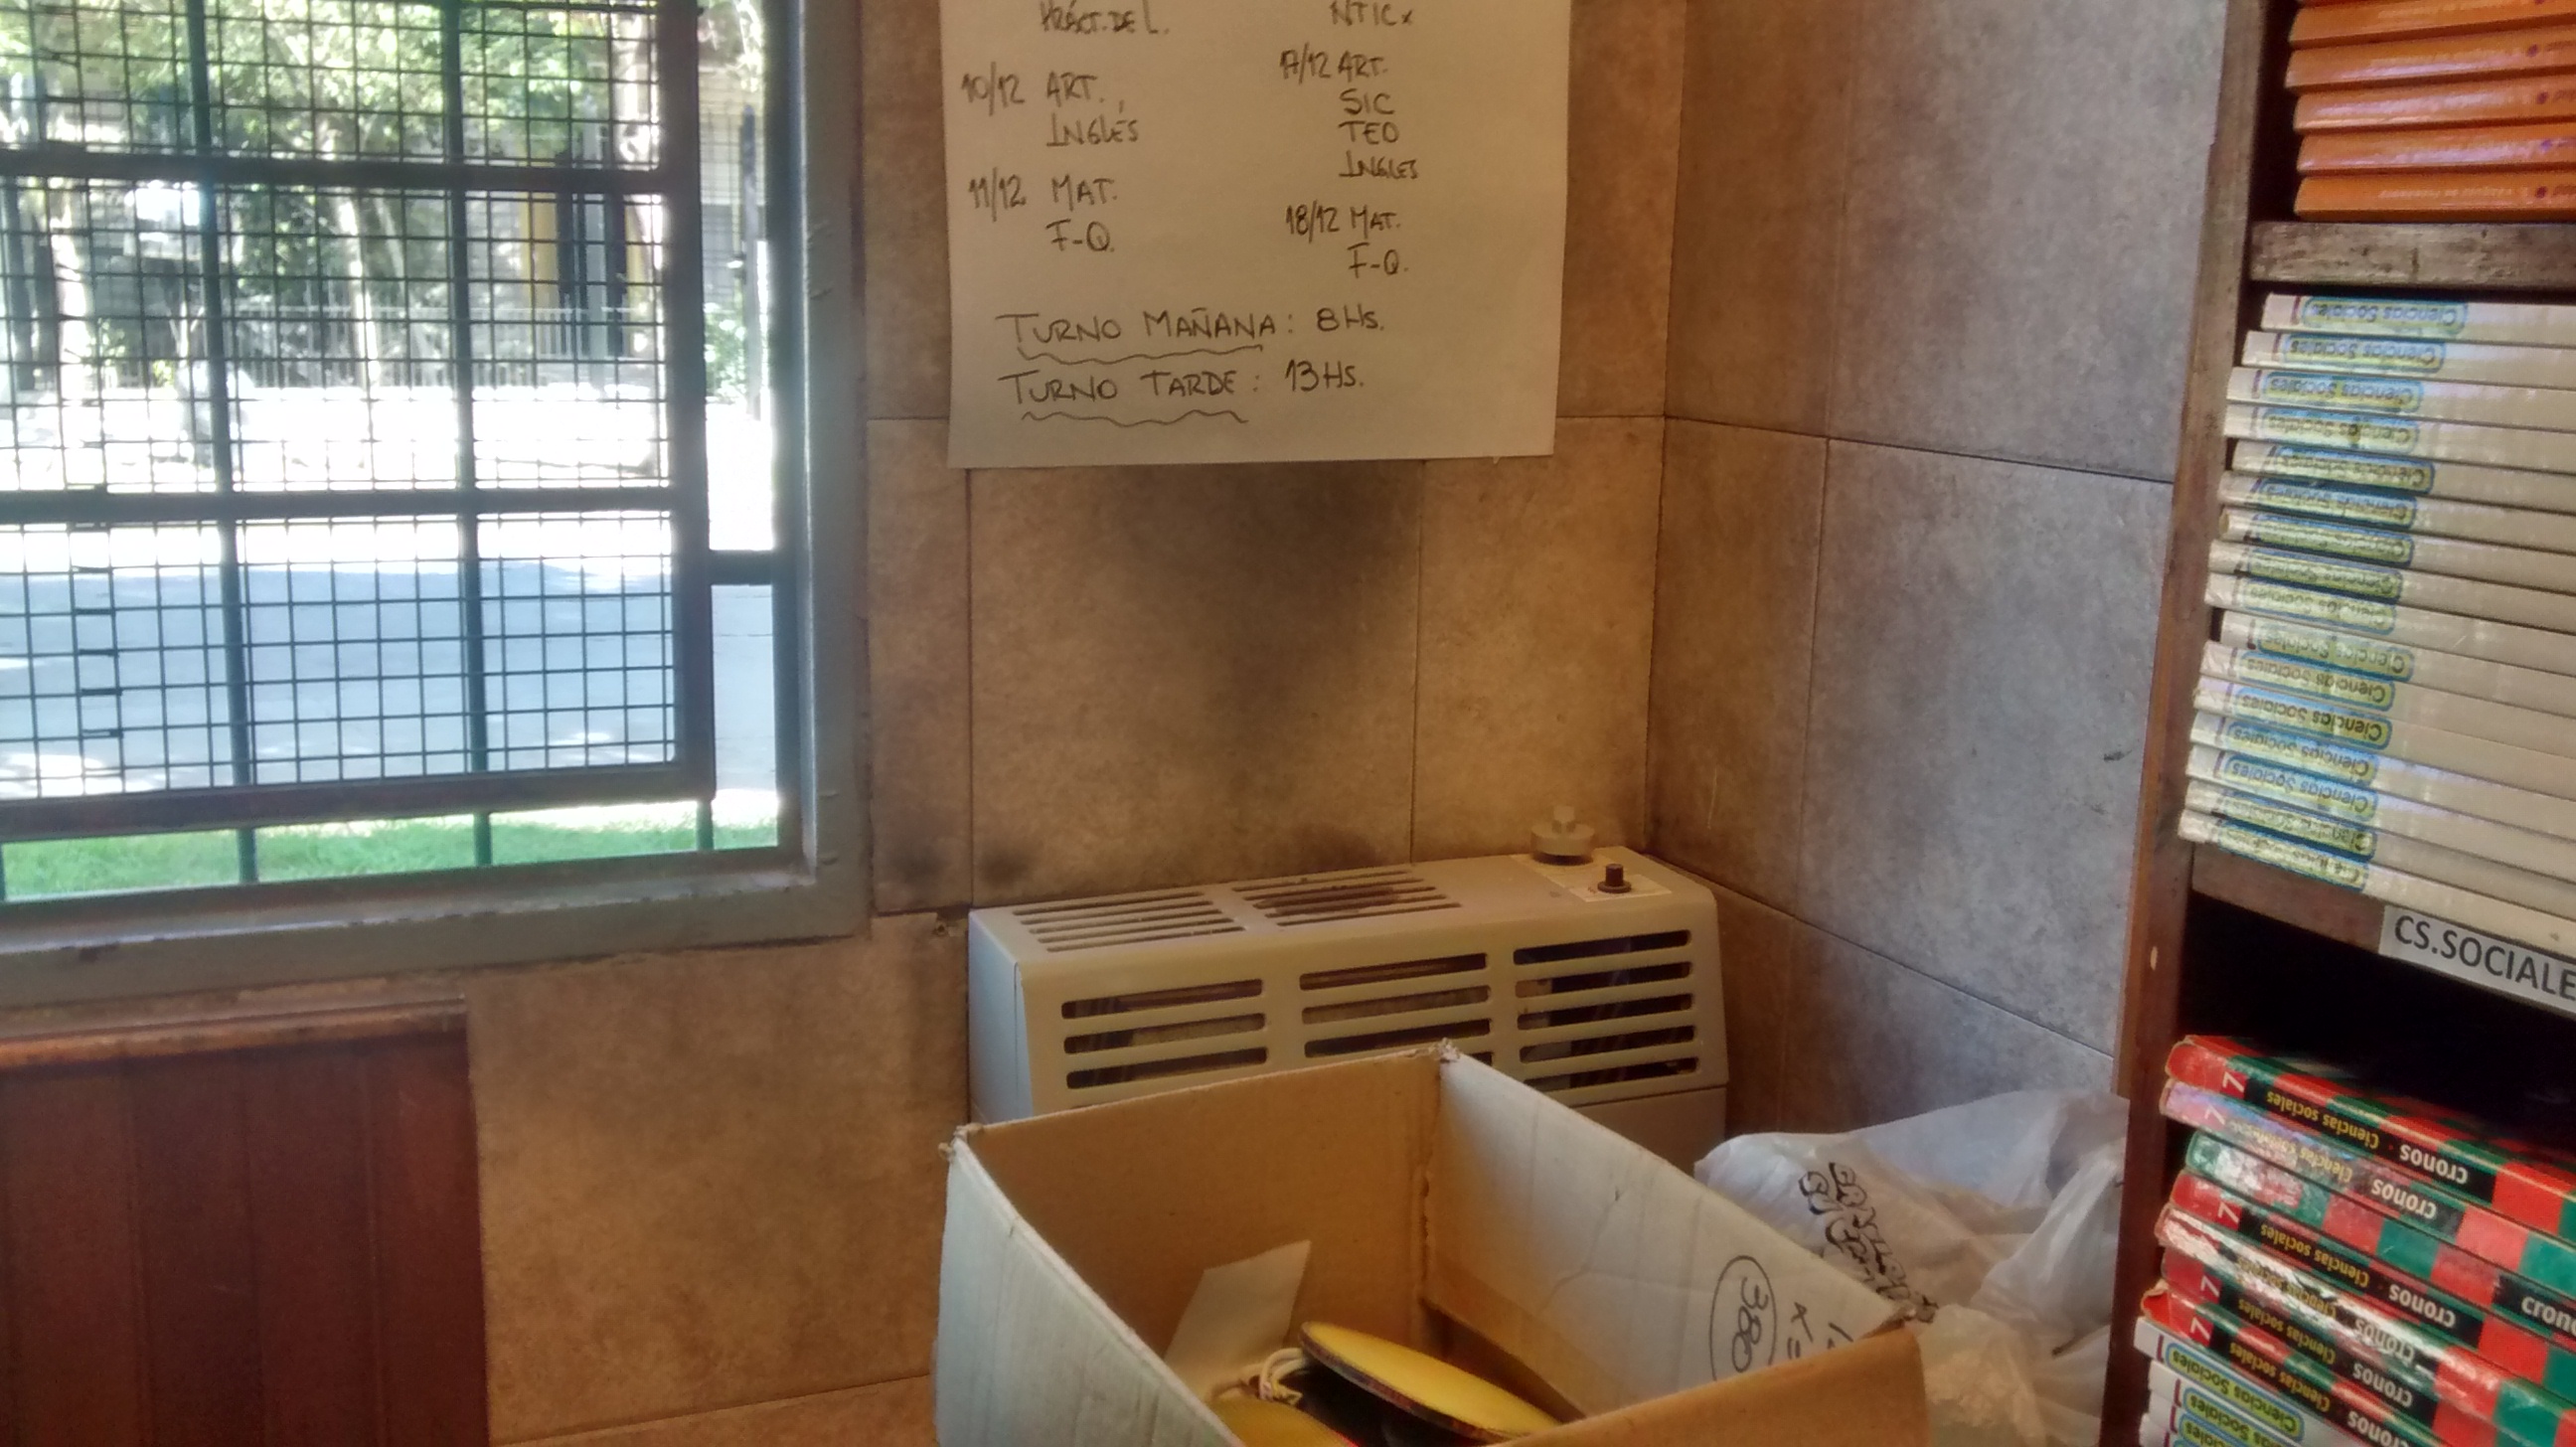 PRÁCT. DE L.
10/12 ART.
INGLÉS
11/12 MAT.
F-Q.
NTICx
17/12 ART.
SIC
TEO
INGLES
18/12 MAT.
F-Q.
TURNO MAÑANA: 8 Hs.
TURNO TARDE: 13 Hs.
Ciencias Sociales
Ciencias Sociales
Ciencias Sociales
Ciencias Sociales
Ciencias Sociales
Ciencias Sociales
Ciencias Sociales
Ciencias Sociales
Ciencias Sociales
Ciencias Sociales
Ciencias Sociales
Ciencias Sociales
Ciencias Sociales
Ciencias Sociales
CS.SOCIALE
7 Ciencias sociales · cronos
7 Ciencias sociales · cronos
Ciencias sociales · cronos
7 Ciencias sociales · cronos
Ciencias sociales · cronos
7 Ciencias sociales · cronos
7 Ciencias sociales · cronos
Ciencias Sociales
Ciencias Sociales
380